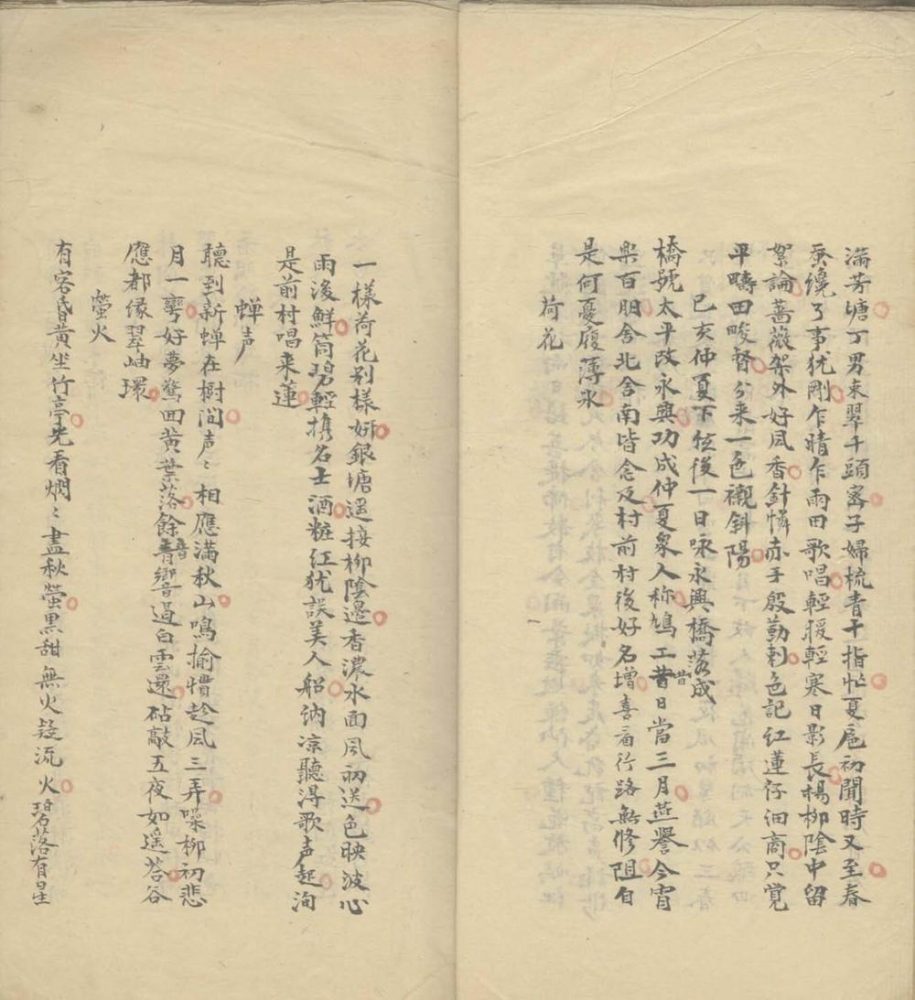 滿芳塘丁男束翠千頭密子婦梳青十指忙夏扈初聞時又至春
蚕纔了事犹剛乍晴乍雨田歌唱輕暖輕寒日影長楊柳陰中留
絮論薔薇架外好風香針憐赤子殷勤刺色記紅蓮仔細商只覚
平疇田畯督分来一色襯斜陽
己亥仲夏下佐後一日咏永興橋落成
橋號太平改永興功成仲夏衆人称鳩工昔昔日當三月燕譽今宵
樂百朋舍北舍南皆念及村前村後好名增喜看行路無修阻自
是何憂履薄氷
荷花
一樣荷花别樣妍銀塘遥接柳陰邉香濃水面風初送色映波心
雨後鮮筒碧輕携名士酒粧紅犹誤美人船納凉聽得歌声起洵
是前村唱来蓮
蝉声
聽到新蝉在樹间声〻相應滿秋山鳴揄慣趁風三弄噪柳初悲
月一彎好夢驚囬黄葉落餘音響過白雲還砧敲五夜如遥荅谷
應都像翠岫環
螢火
有客昏黄坐竹亭先看烱〻盡秋螢黑甜無火疑流火碧落有星